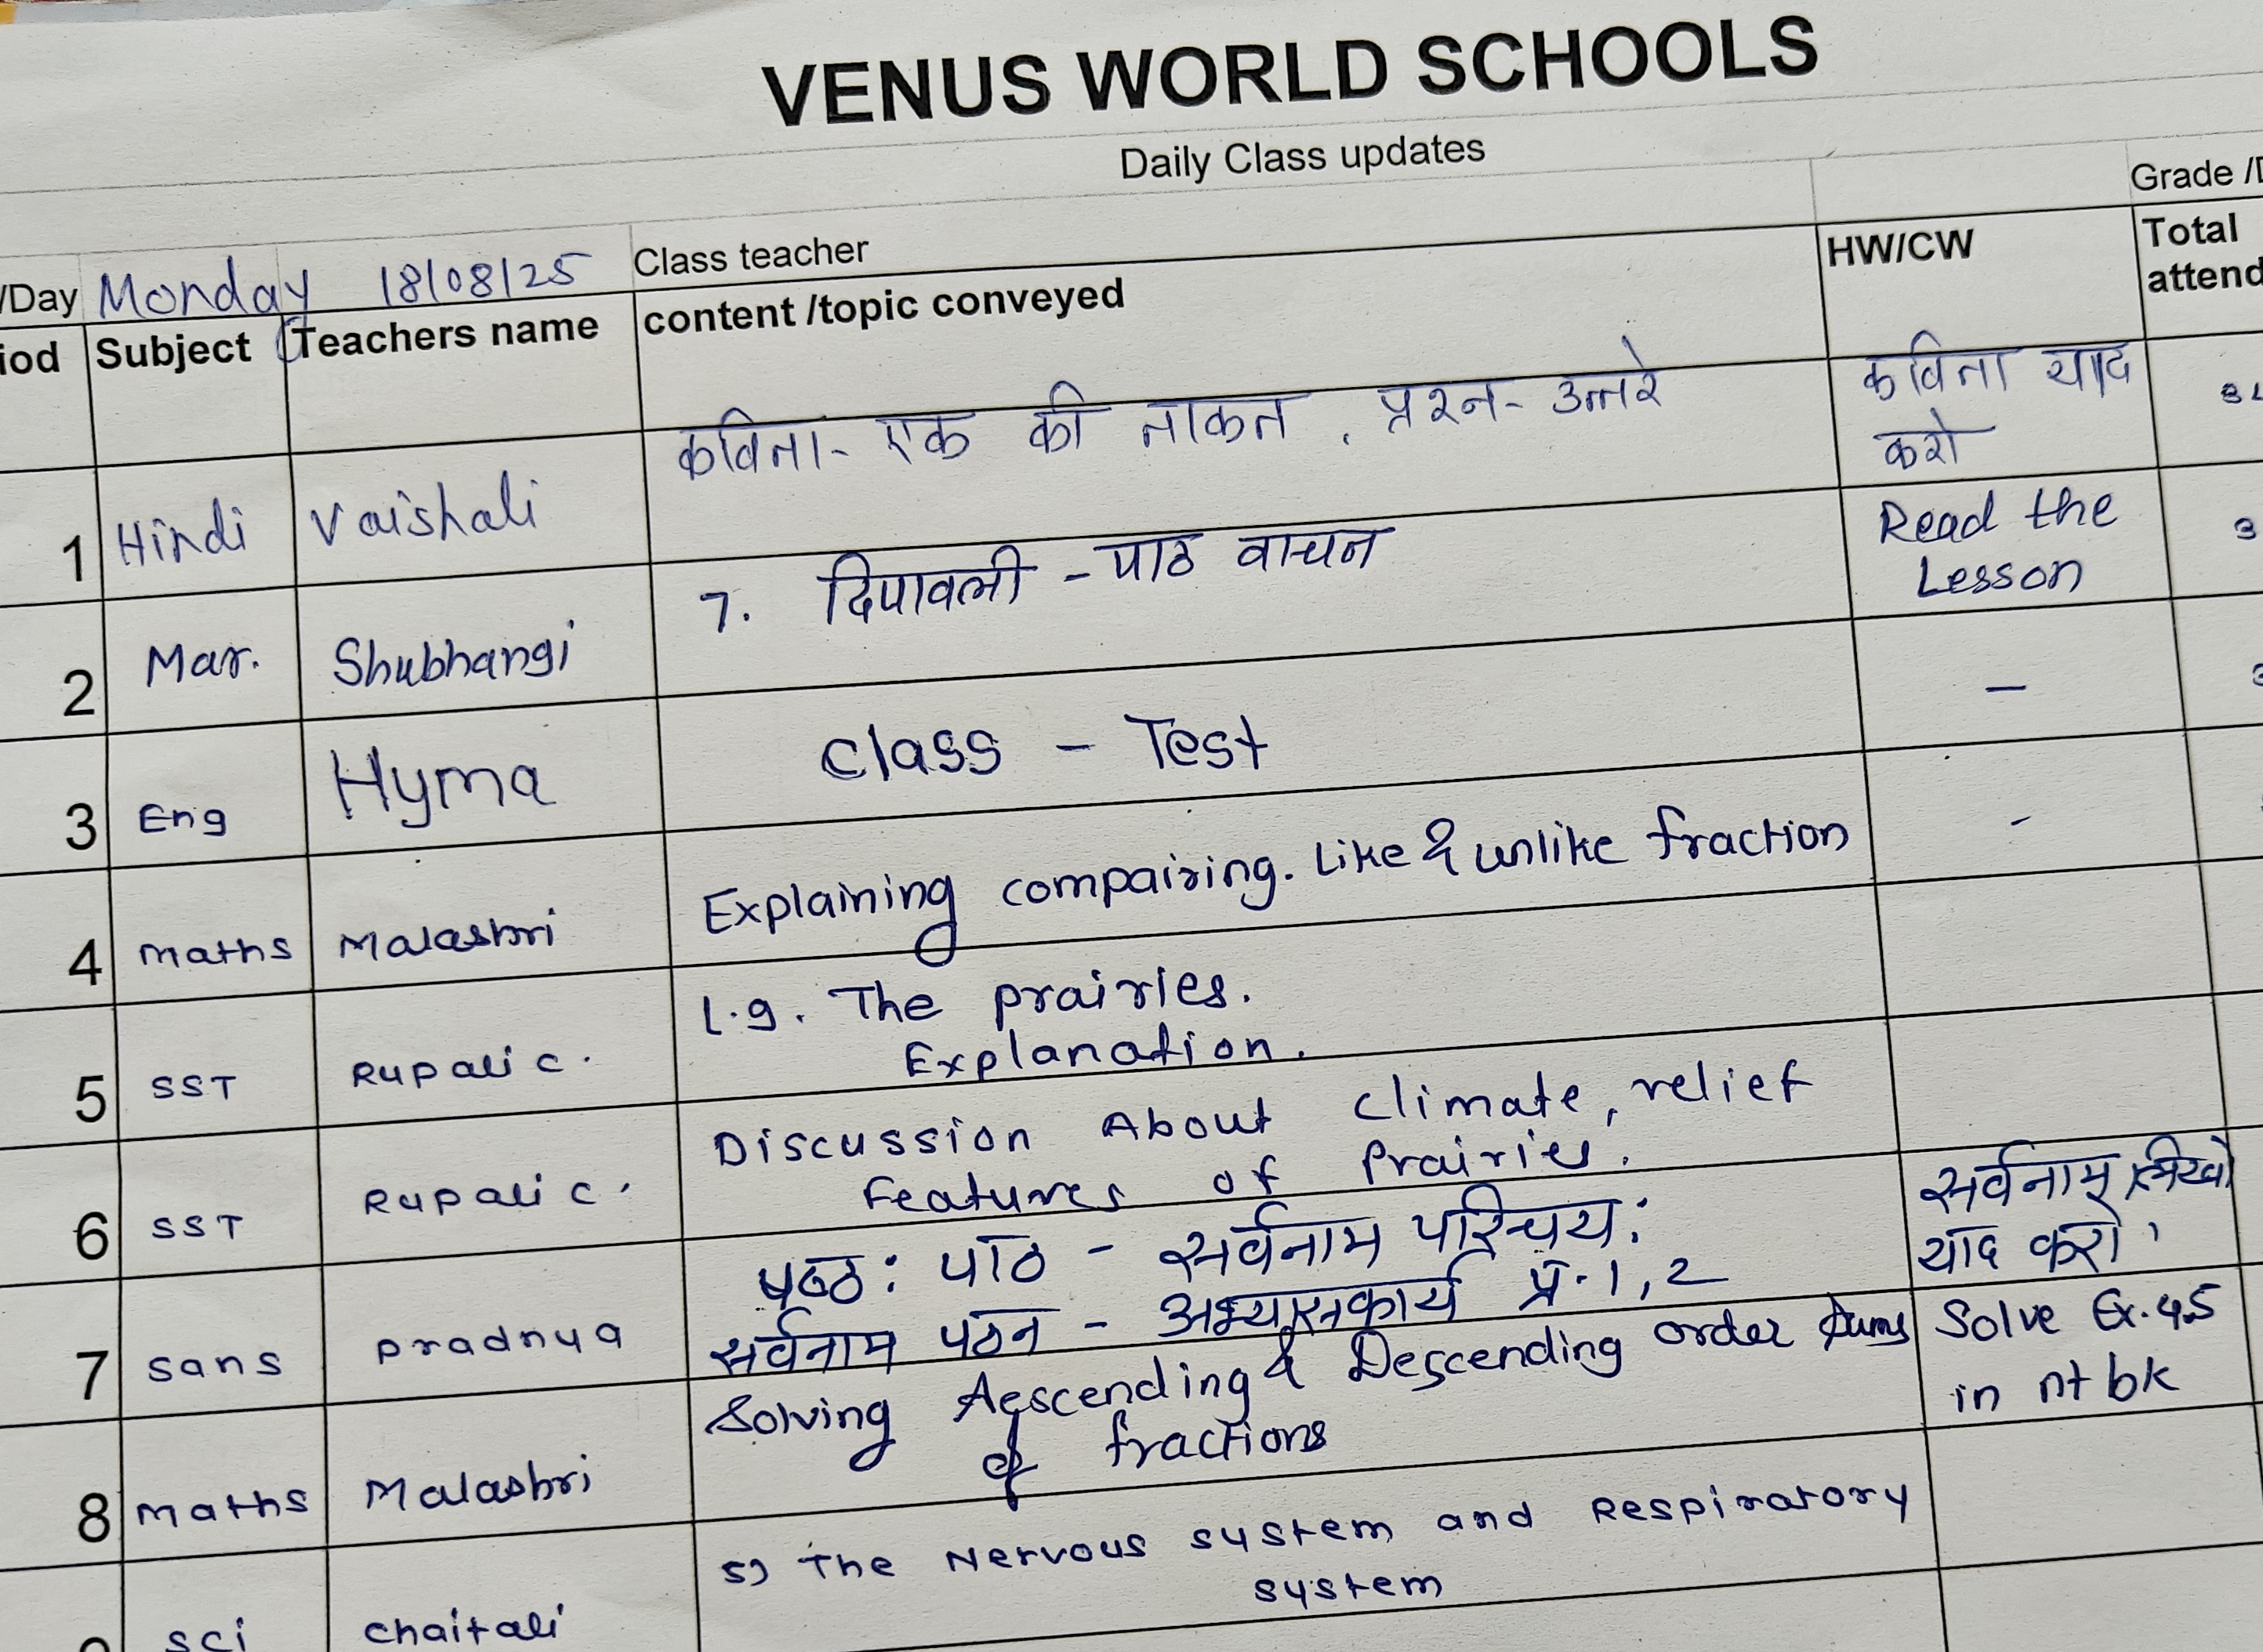 VENUS WORLD SCHOOLS
Daily Class updates
Grade /
/Day Monday 18/08/25 Class teacher
iod Subject Teachers name content /topic conveyed HW/CW Total
attend
1 Hindi Vaishali कविता- एक की ताकत , प्रश्न- उत्तरे कविता याद
करो
2 Mar. Shubhangi 7. दिपावली - पाठ वाचन Read the
Lesson
3 Eng Hyma Class - Test —
4 Maths Malashri Explaining compairing. Like & unlike fraction -
5 SST Rupali c. L.9. The prairies.
Explanation.
6 SST Rupali c. Discussion About climate, relief
Features of Prairies.
7 Sans Pradnya षष्ठ: पाठ - सर्वनाम परिचय: सर्वनाम लिखो
सर्वनाम पठन - अभ्यासकार्य प्र. 1, 2 याद करो।
8 Maths Malashri Solving Aescending & Descending order sums Solve Ex. 4,5
of fractions in nt bk
sci chaitali 5) The Nervous system and Respiratory
system